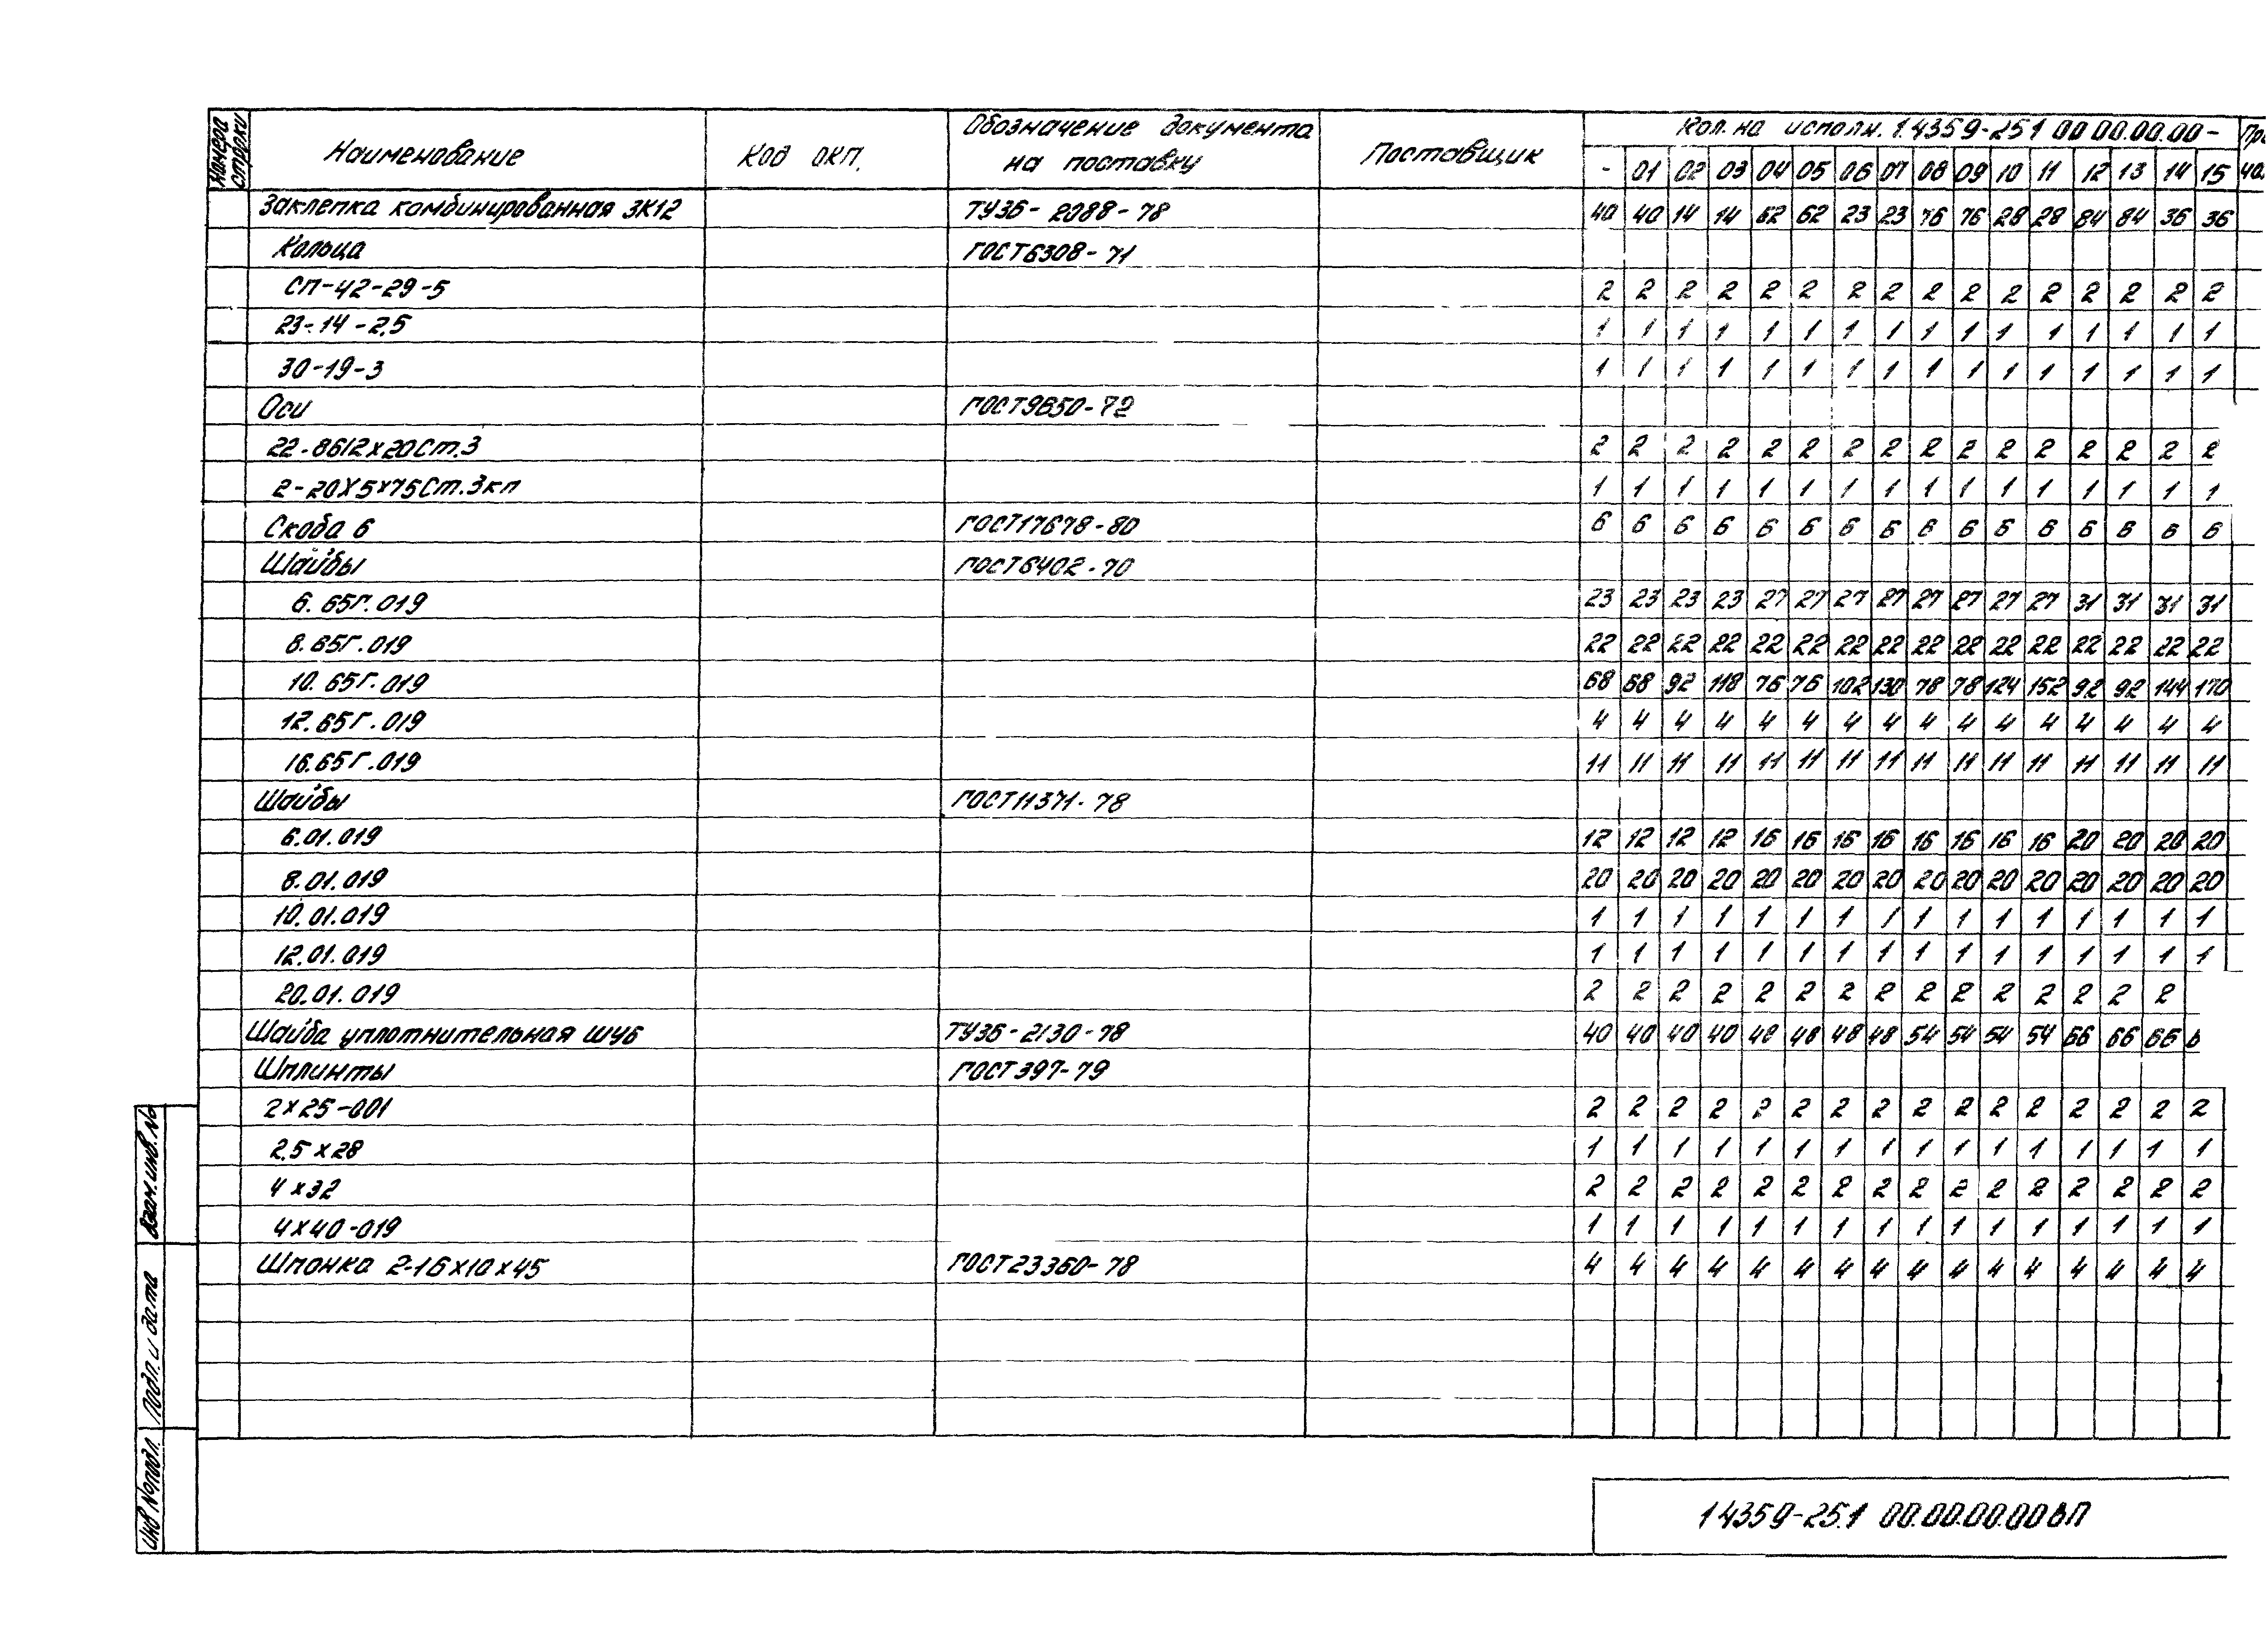 Номера строки Наименование Код ОКП. Обозначение документа на поставку Поставщик Кол. на исполн. 1.435.9-25.1 00.00.00.00-
- 01 02 03 04 05 06 07 08 09 10 11 12 13 14 15
Заклепка комбинированная ЗК12 ТУ36-2088-78 40 40 14 14 62 62 23 23 76 76 28 28 84 84 36 36
Кольца ГОСТ6308-71
СП-42-29-5 2 2 2 2 2 2 2 2 2 2 2 2 2 2 2 2
23-14-2,5 1 1 1 1 1 1 1 1 1 1 1 1 1 1 1 1
30-19-3 1 1 1 1 1 1 1 1 1 1 1 1 1 1 1 1
Оси ГОСТ9650-72
22-8б12х20Ст.3 2 2 2 2 2 2 2 2 2 2 2 2 2 2 2 2
2-20х5х75Ст.3кп 1 1 1 1 1 1 1 1 1 1 1 1 1 1 1 1
Скоба 6 ГОСТ17678-80 6 6 6 6 6 6 6 6 6 6 6 6 6 6 6 6
Шайбы ГОСТ6402-70
6. 65Г. 019 23 23 23 23 27 27 27 27 27 27 27 27 31 31 31 31
8. 65Г. 019 22 22 22 22 22 22 22 22 22 22 22 22 22 22 22 22
10. 65Г. 019 68 68 92 118 76 76 102 130 78 78 124 152 92 92 144 170
12. 65Г. 019 4 4 4 4 4 4 4 4 4 4 4 4 4 4 4 4
16. 65Г. 019 11 11 11 11 11 11 11 11 11 11 11 11 11 11 11 11
Шайбы ГОСТ11371-78
6.01.019 12 12 12 12 16 16 16 16 16 16 16 16 20 20 20 20
8.01.019 20 20 20 20 20 20 20 20 20 20 20 20 20 20 20 20
10.01.019 1 1 1 1 1 1 1 1 1 1 1 1 1 1 1 1
12.01.019 1 1 1 1 1 1 1 1 1 1 1 1 1 1 1 1
20.01.019 2 2 2 2 2 2 2 2 2 2 2 2 2 2 2
Шайба уплотнительная ШУ6 ТУ36-2130-78 40 40 40 40 48 48 48 48 54 54 54 54 66 66 66
Шплинты ГОСТ397-79
2х25-001 2 2 2 2 2 2 2 2 2 2 2 2 2 2 2 2
2,5х28 1 1 1 1 1 1 1 1 1 1 1 1 1 1 1 1
4х32 2 2 2 2 2 2 2 2 2 2 2 2 2 2 2 2
4х40-019 1 1 1 1 1 1 1 1 1 1 1 1 1 1 1 1
Шпонка 2-16х10х45 ГОСТ23360-78 4 4 4 4 4 4 4 4 4 4 4 4 4 4 4 4
Взам.инв.№
Подп. и дата
Инв №подл.
1 435 9-25.1 00.00.00.00 ВП